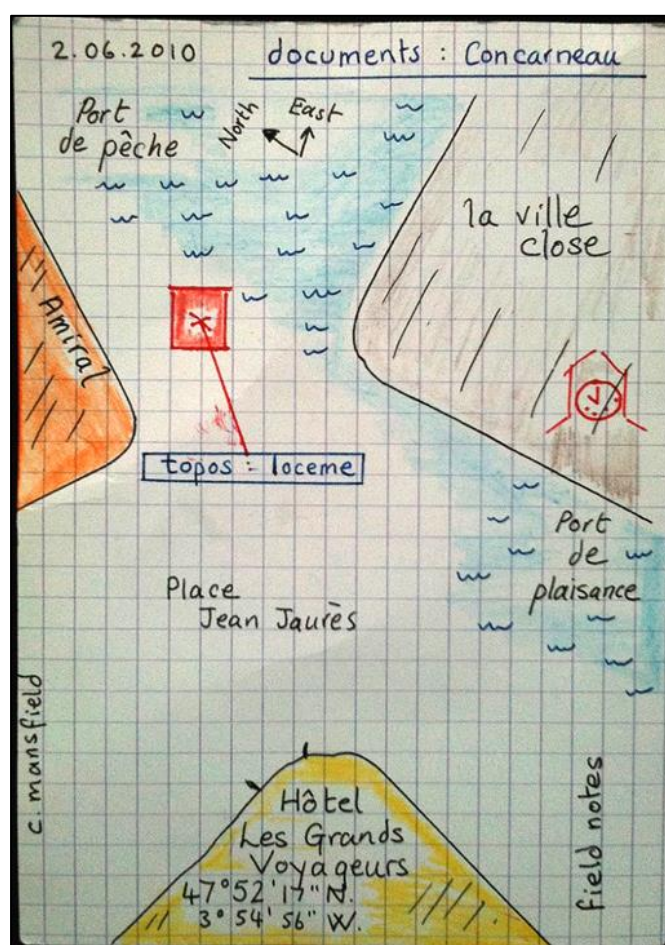 2.06.2010
documents : Concarneau
Port
de pêche
North
East
la ville
close
Amiral
topos : loceme
Port
de
plaisance
Place
Jean Jaurès
c. mansfield
field notes
Hôtel
Les Grands
Voyageurs
47°52'17"N.
3°54'56"W.